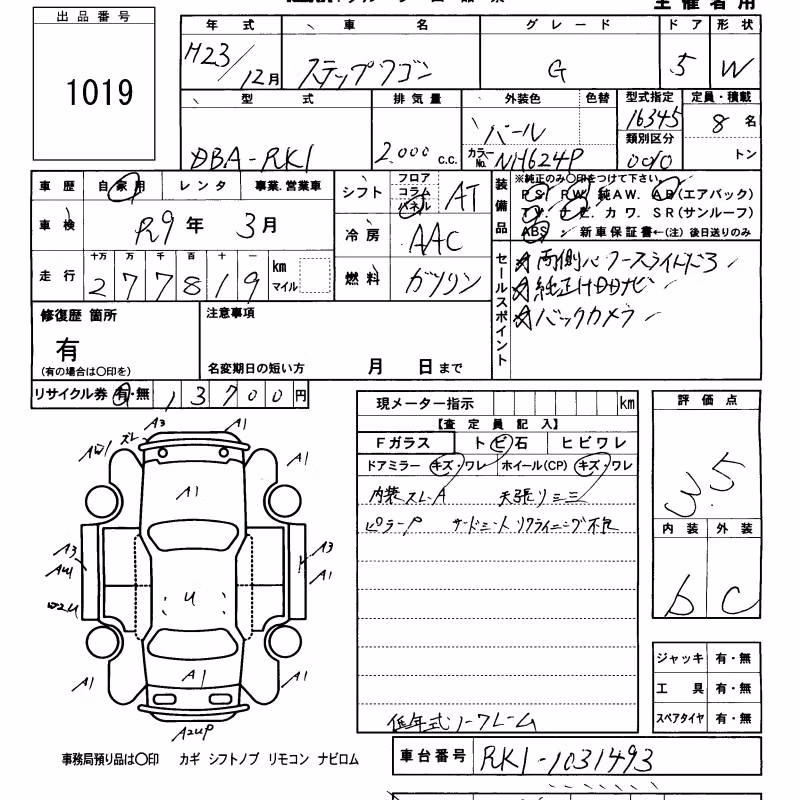 主催者用
出品番号
1019
年式 車名 グレード ドア 形状
H23/12月 ステップワゴン G 5 W
型式 排気量 外装色 色替 型式指定 定員・積載
DBA-RK1 2.000 c.c. パール 16345 8名
カラーNo. NH624P 類別区分 0010 トン
車歴 自家用 レンタ 事業.営業車
シフト フロア コラム パネル AT
車検 R9年 3月
冷房 AAC
走行 十万 万 千 百 十 一
277819 km マイル
燃料 ガソリン
装備品 ※純正のみ〇印をつけて下さい
PS. PW. 純AW. AB(エアバック)
TV. ナビ. カワ. SR(サンルーフ)
ABS 新車保証書←(注)後日送りのみ
セールスポイント
☆両側パワースライドドア
☆純正HDDナビ
☆バックカメラ
修復歴 箇所
有
(有の場合は〇印を)
注意事項
名変期日の短い方 月 日まで
リサイクル券 有・無 13700円
現メーター指示 km
【査定員記入】
Fガラス トビ石 ヒビワレ
ドアミラー キズ・ワレ ホイール(CP) キズ・ワレ
内装スレA 天張りシミ
ピラーP サードシートリクライニング不良
低年式ノークレーム
評価点
3.5
内装 外装
b C
ジャッキ 有・無
工具 有・無
スペアタイヤ 有・無
A3 A1
スレ
A1
A1
A3 A3
A1
U
A1 A1 A1
A2UP
事務局預り品は〇印 カギ シフトノブ リモコン ナビロム
車台番号 RK1-1031493